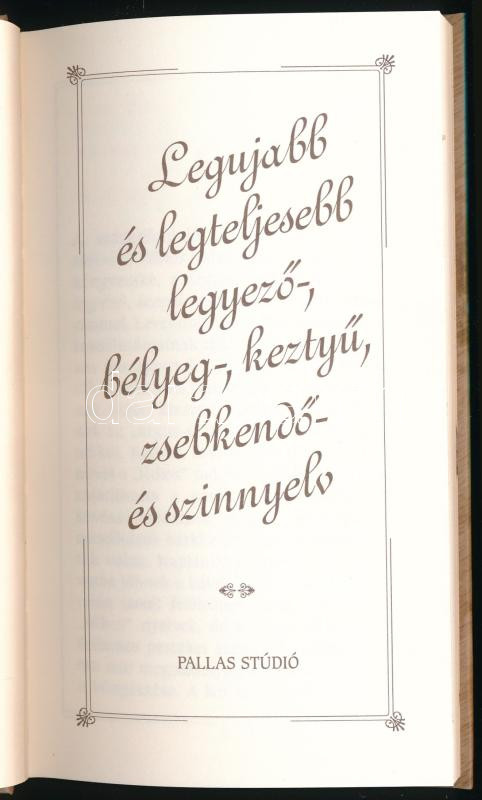 Legujabb
és legteljesebb
legyező-,
bélyeg-, keztyű,
zsebkendő-
és szinnyelv
PALLAS STÚDIÓ